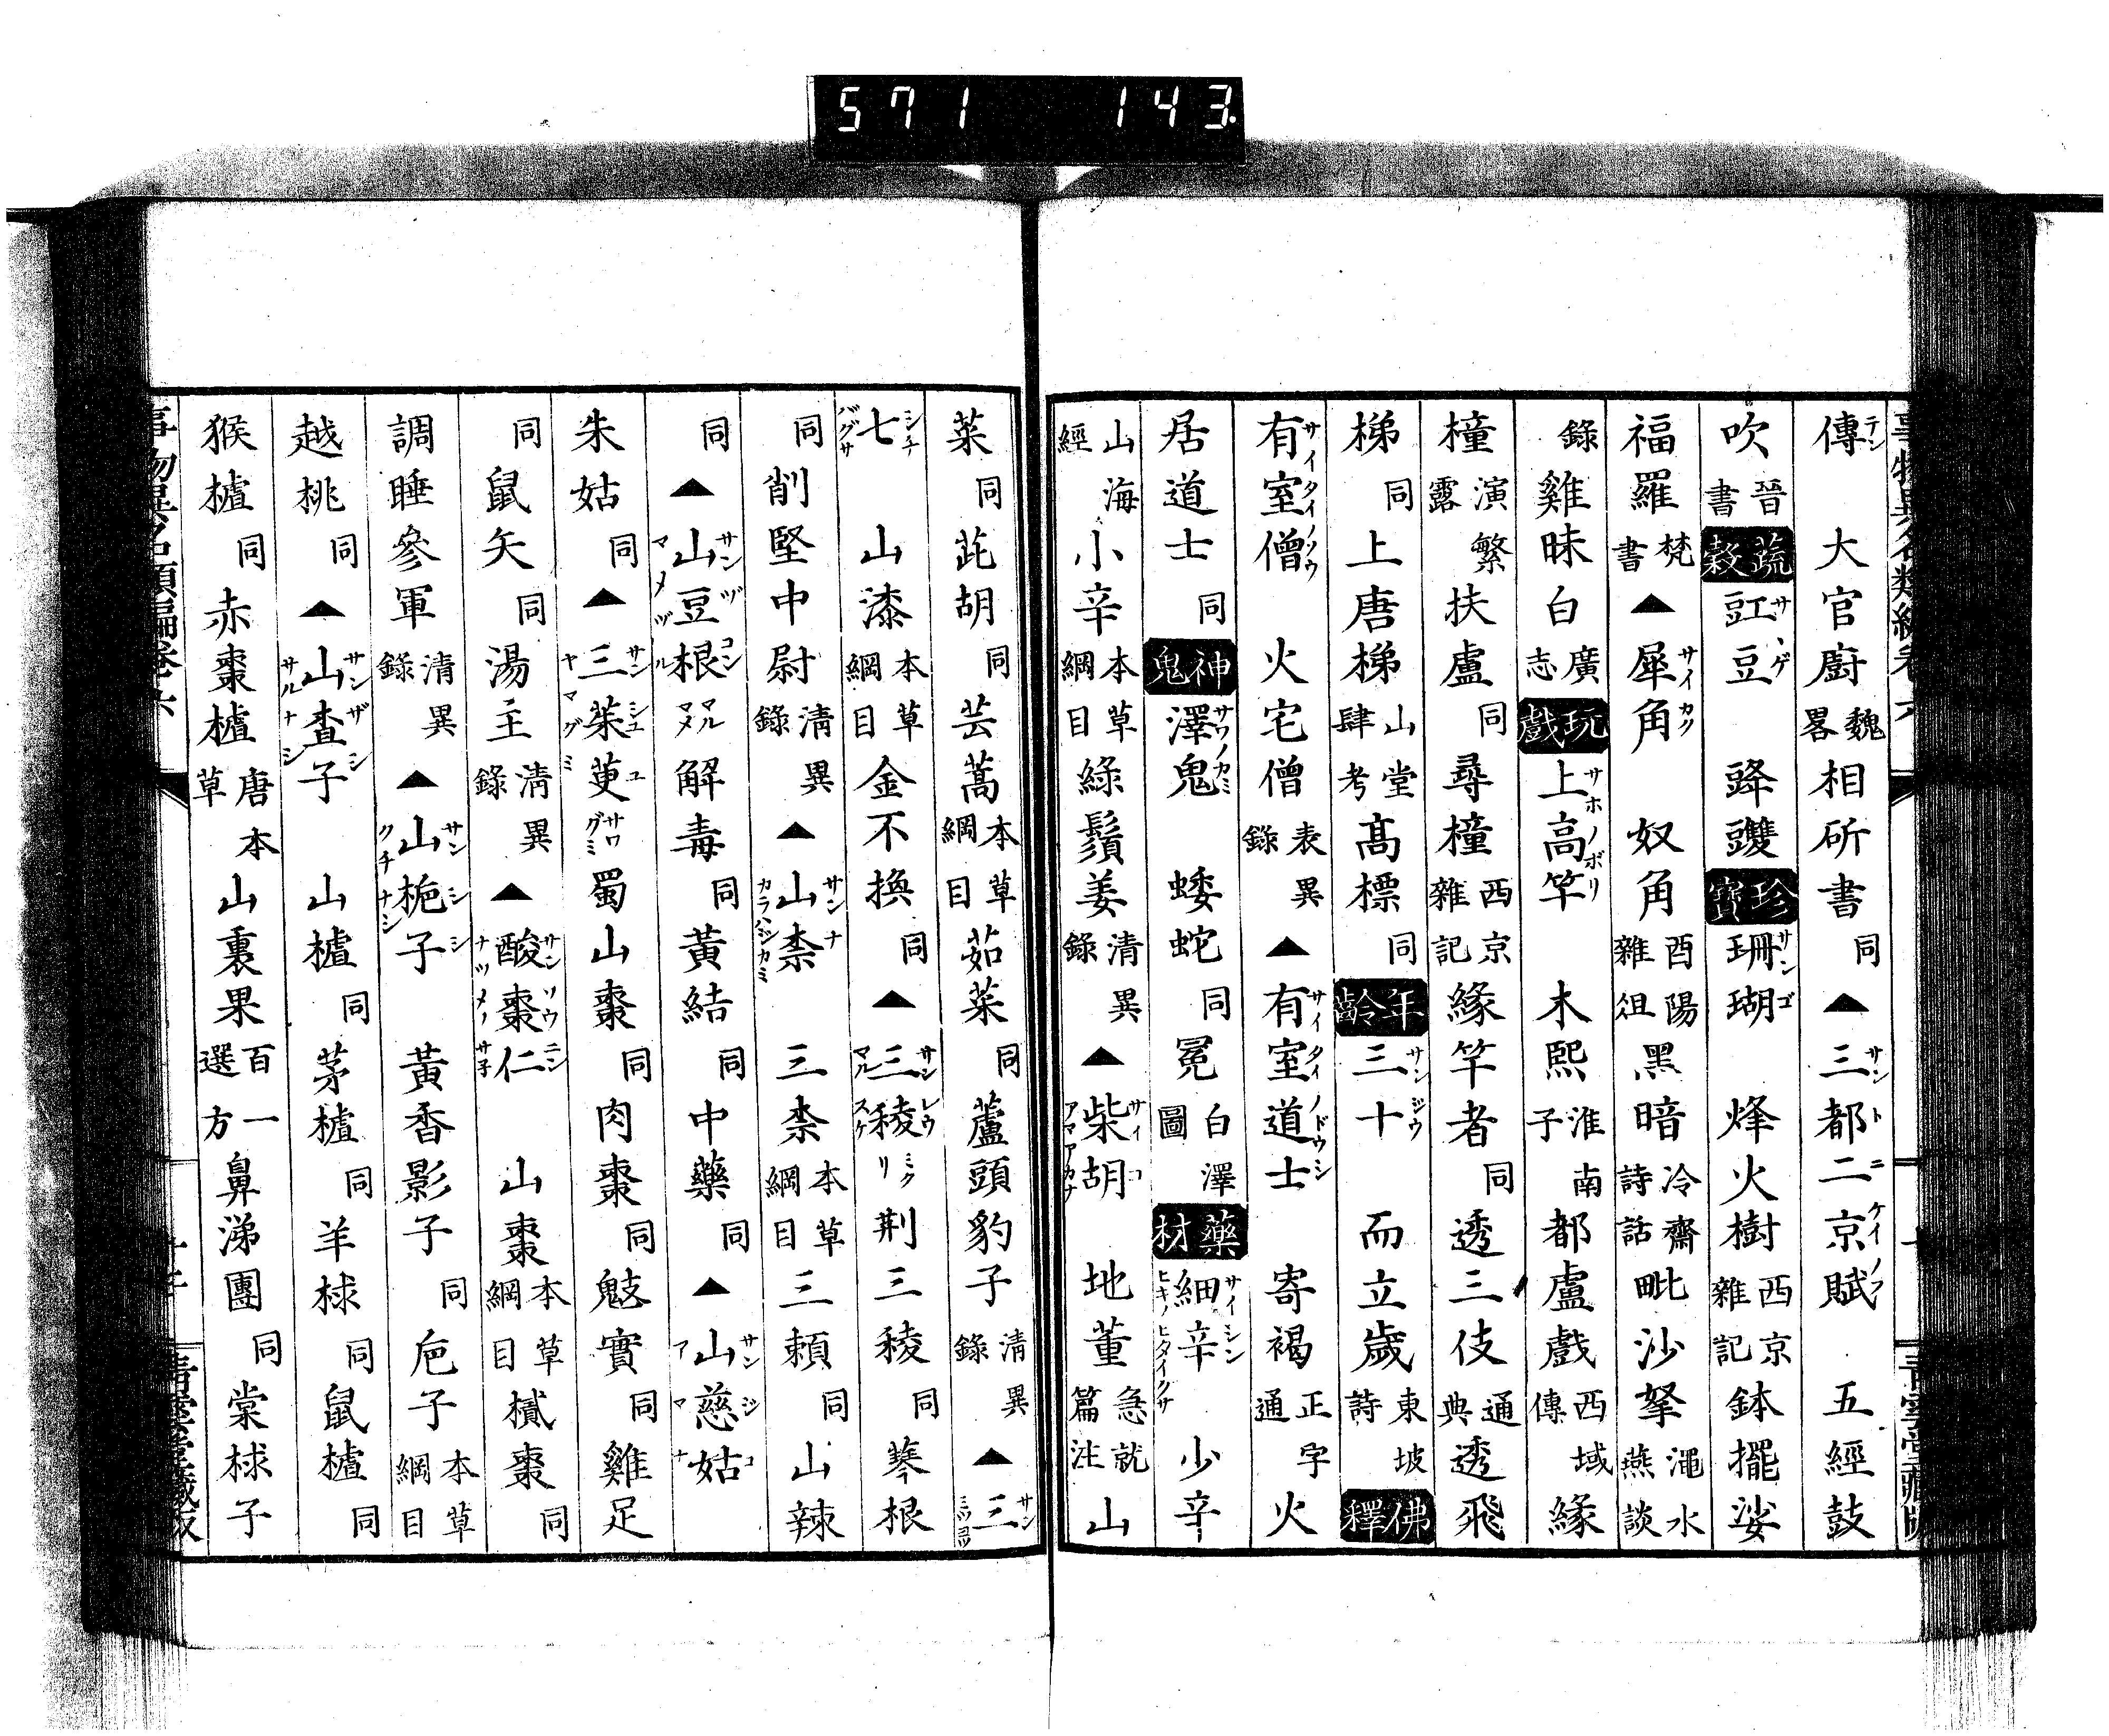 571 143
傳 大官廚 魏畧 相斫書 同 ▲三都二京賦 五經鼓
吹 晉書 蔬穀 豇豆 䜶䝄 珍寶 珊瑚 烽火樹 西京雜記 鉢擺娑
福羅 梵書 ▲犀角 奴角 酉陽雜俎 黑暗 冷齋詩話 毗沙拏 澠水燕談
錄 雞昧白 廣志 玩戲 上高竿 木熙 淮南子 都盧戲 西域傳 緣
橦 演繁露 扶盧 同 尋橦 西京雜記 緣竿者 同 透三伎 通典 透飛
梯 同 上唐梯 山堂肆考 高標 同 年齡 三十 而立歲 東坡詩 佛釋
有室僧 火宅僧 表異錄 ▲有室道士 寄褐 正字通 火
居道士 同 神鬼 澤鬼 蜲蛇 同 冕 白澤圖 藥材 細辛 少辛
山海經 小辛 本草綱目 綠鬚姜 清異錄 ▲柴胡 地董 急就篇注 山
菜 同 茈胡 同 芸蒿 本草綱目 茹菜 同 蘆頭豹子 清異錄 ▲三
七 山漆 本草綱目 金不換 同 ▲三稜 荆三稜 同 䓻根
同 削堅中尉 清異錄 ▲山柰 三柰 本草綱目 三賴 同 山辣
同 ▲山豆根 解毒 同 黃結 同 中藥 同 ▲山慈姑
朱姑 同 ▲三茱萸 蜀山棗 同 肉棗 同 鬾實 同 雞足
同 鼠矢 同 湯主 清異錄 ▲酸棗仁 山棗 本草綱目 樲棗 同
調睡參軍 清異錄 ▲山梔子 黃香影子 同 巵子 本草綱目
越桃 同 ▲山査子 山樝 同 茅樝 同 羊梂 同 鼠樝 同
猴樝 同 赤棗樝 唐本草 山裏果 百一選方 鼻涕團 同 棠梂子